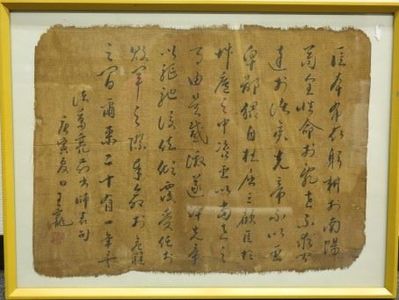 臣本布衣躬耕於南陽
苟全性命於亂世不求聞
達於諸侯先帝不以臣
卑鄙猥自枉屈三顧臣於
艸廬之中諮臣以當世之
事由是感激遂許先帝
以驅馳後值傾覆受任於
敗軍之際奉命於危難
之間爾來二十有一年矣
諸葛亮前出師表句
庚寅夏日王